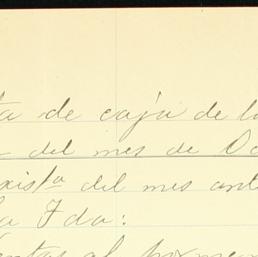 ta de caja de l
del mes de Oc
xist.a del mes ant
la Fda:
ntas al porme